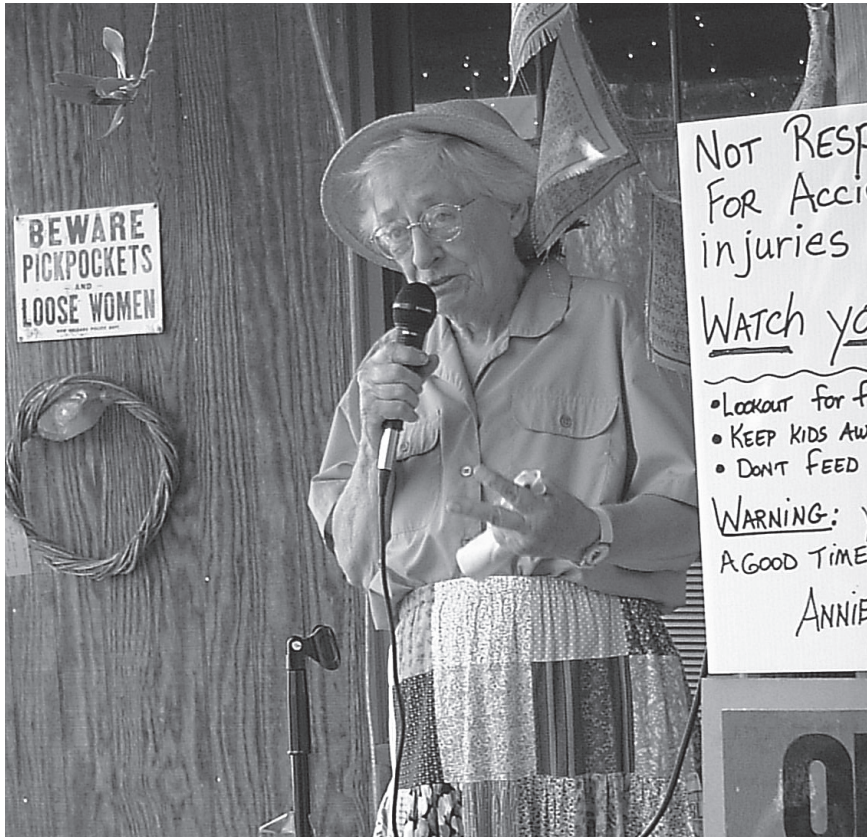 BEWARE
PICKPOCKETS
AND
LOOSE WOMEN
NEW ORLEANS POLICE DEPT.
NOT RESP
FOR ACCI
injuries
WATCH yo
• LOOKOUT for f
• KEEP KIDS AW
• DONT FEED
WARNING: Y
A GOOD TIME
ANNIE